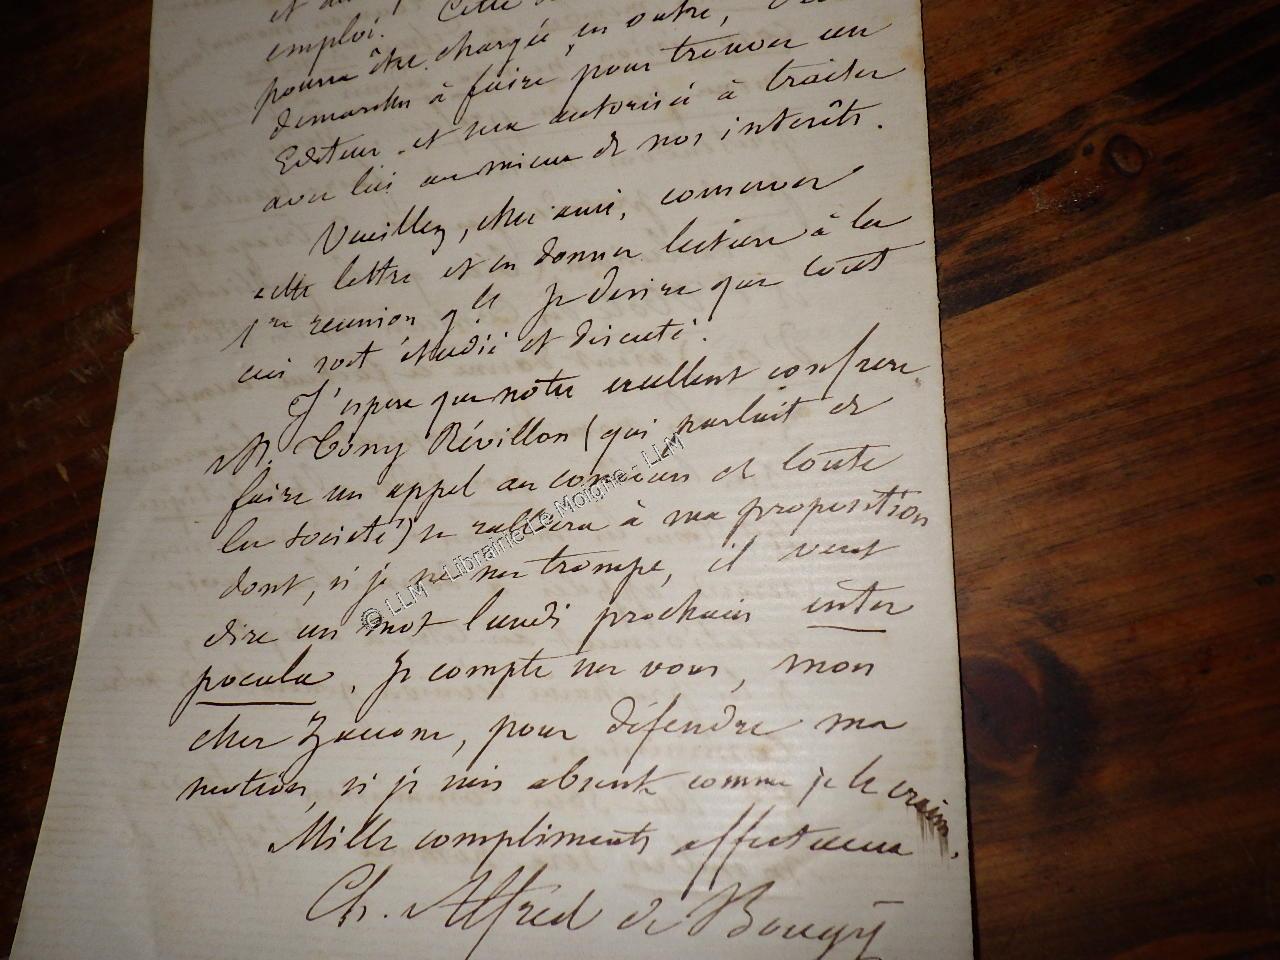 emploi. Cette
pourra être chargée, en outre,
démarches à faire pour trouver un
Editeur et sera autorisée à traiter
avec lui au mieux de nos intérêts.
Veuillez, cher ami, conserver
cette lettre et en donner lecture à la
1re réunion gle Je désire que tout
ceci soit étudié et discuté.
J'espère que notre excellent confrère
M. Tony Révillon (qui parlait de
faire un appel au concours de toute
la société) se ralliera à ma proposition
dont, si je ne me trompe, il veut
dire un mot lundi prochain inter
pocula. Je compte sur vous, mon
cher Zaccone, pour défendre ma
motion, si je suis absent comme je le crains.
Mille compliments affectueux
Ch. Alfred de Bougy
© LLM - Librairie Le Moigne - LLM